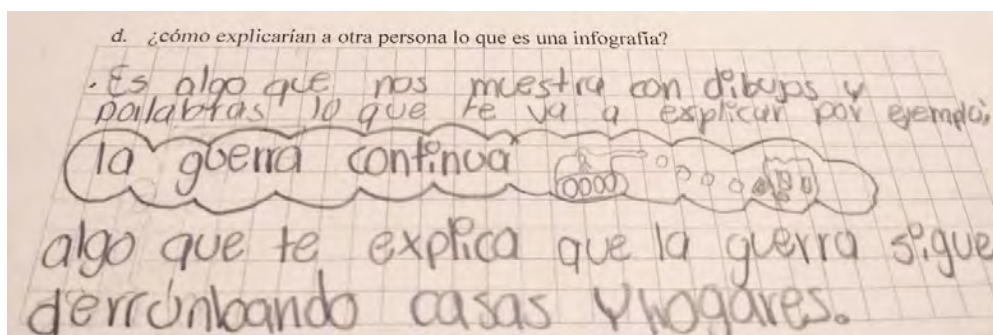 d. ¿cómo explicarían a otra persona lo que es una infografía?
. Es algo que nos muestra con dibujos y
pallabras lo que te va a explicar por ejemplo;
la guerra continua
algo que te explica que la guerra sigue
derrunbando casas y hogares.